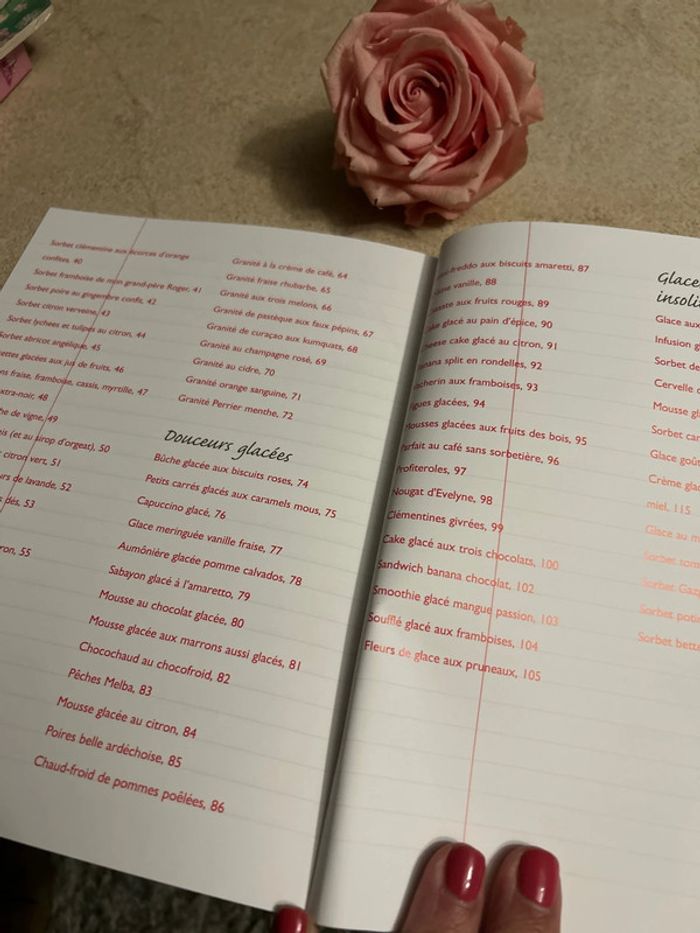 Sorbet clémentine aux écorces d'orange
confites, 40
Sorbet framboise de mon grand-père Roger, 41
Sorbet poire au gingembre confit, 42
Sorbet citron verveine, 43
Sorbet lychees et tulipes au citron, 44
Sorbet abricot angélique, 45
glacées aux jus de fruits, 46
fraise, framboise, cassis, myrtille, 47
48
de vigne, 49
(et au sirop d'orgeat), 50
citron vert, 51
de lavande, 52
dés, 53
55
Granité à la crème de café, 64
Granité fraise rhubarbe, 65
Granité aux trois melons, 66
Granité de pastèque aux faux pépins, 67
Granité de curaçao aux kumquats, 68
Granité au champagne rosé, 69
Granité au cidre, 70
Granité orange sanguine, 71
Granité Perrier menthe, 72
Douceurs glacées
Bûche glacée aux biscuits roses, 74
Petits carrés glacés aux caramels mous, 75
Capuccino glacé, 76
Glace meringuée vanille fraise, 77
Aumônière glacée pomme calvados, 78
Sabayon glacé à l'amaretto, 79
Mousse au chocolat glacée, 80
Mousse glacée aux marrons aussi glacés, 81
Chocochaud au chocofroid, 82
Pêches Melba, 83
Mousse glacée au citron, 84
Poires belle ardéchoise, 85
Chaud-froid de pommes poêlées, 86
freddo aux biscuits amaretti, 87
vanille, 88
aux fruits rouges, 89
glacé au pain d'épice, 90
cake glacé au citron, 91
split en rondelles, 92
aux framboises, 93
glacées, 94
Mousses glacées aux fruits des bois, 95
Parfait au café sans sorbetière, 96
Profiteroles, 97
Nougat d'Evelyne, 98
Clémentines givrées, 99
Cake glacé aux trois chocolats, 100
Sandwich banana chocolat, 102
Smoothie glacé mangue passion, 103
Soufflé glacé aux framboises, 104
Fleurs de glace aux pruneaux, 105
Glace
Glace aux
Infusion
Sorbet de
Cervelle
Mousse
Sorbet
Glace
Crème
miel, 115
Glace au
Sorbet
Sorbet
Sorbet
Sorbet